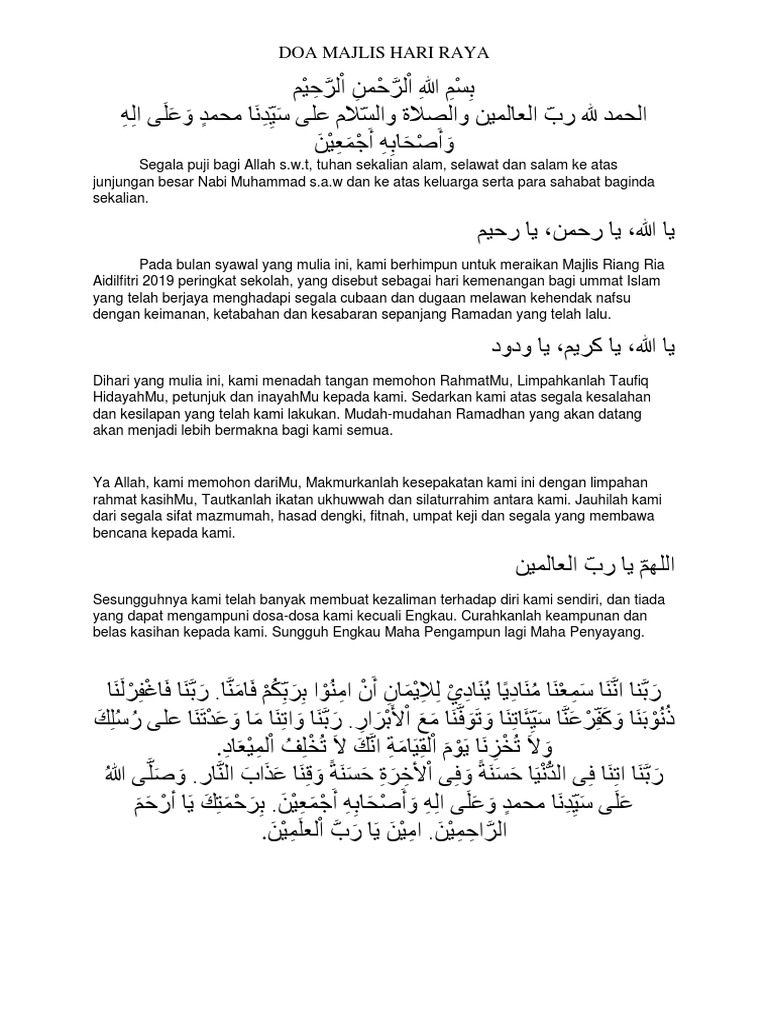 DOA MAJLIS HARI RAYA
بِسْمِ اللهِ الْرَّحْمنِ الْرَّحِيْمِ
الحمد لله ربّ العالمين والصلاة والسّلام على سَيِّدِنَا محمدٍ وَعَلَى الِهِ
وَأَصْحَابِهِ أَجْمَعِيْنَ
Segala puji bagi Allah s.w.t, tuhan sekalian alam, selawat dan salam ke atas
junjungan besar Nabi Muhammad s.a.w dan ke atas keluarga serta para sahabat baginda
sekalian.
يا الله، يا رحمن، يا رحيم
Pada bulan syawal yang mulia ini, kami berhimpun untuk meraikan Majlis Riang Ria
Aidilfitri 2019 peringkat sekolah, yang disebut sebagai hari kemenangan bagi ummat Islam
yang telah berjaya menghadapi segala cubaan dan dugaan melawan kehendak nafsu
dengan keimanan, ketabahan dan kesabaran sepanjang Ramadan yang telah lalu.
يا الله، يا كريم، يا ودود
Dihari yang mulia ini, kami menadah tangan memohon RahmatMu, Limpahkanlah Taufiq
HidayahMu, petunjuk dan inayahMu kepada kami. Sedarkan kami atas segala kesalahan
dan kesilapan yang telah kami lakukan. Mudah-mudahan Ramadhan yang akan datang
akan menjadi lebih bermakna bagi kami semua.
Ya Allah, kami memohon dariMu, Makmurkanlah kesepakatan kami ini dengan limpahan
rahmat kasihMu, Tautkanlah ikatan ukhuwwah dan silaturrahim antara kami. Jauhilah kami
dari segala sifat mazmumah, hasad dengki, fitnah, umpat keji dan segala yang membawa
bencana kepada kami.
اللهمّ يا ربّ العالمين
Sesungguhnya kami telah banyak membuat kezaliman terhadap diri kami sendiri, dan tiada
yang dapat mengampuni dosa-dosa kami kecuali Engkau. Curahkanlah keampunan dan
belas kasihan kepada kami. Sungguh Engkau Maha Pengampun lagi Maha Penyayang.
رَبَّنا انَّنَا سَمِعْنَا مُنَادِيًا يُنَادِيْ لِلِايْمَانِ أَنْ امِنُوْا بِرَبِّكُمْ فَامَنَّا. رَبَّنَا فَاغْفِرْلَنَا
ذُنُوْبَنَا وَكَفِّرْعَنَّا سَيِّئَاتِنَا وَتَوَفَّنَا مَعَ الْأَبْرَارِ. رَبَّنَا وَاتِنَا مَا وَعَدْتَنَا على رُسُلِكَ
وَلاَ تُخْزِنَا يَوْمَ الْقِيَامَةِ انَّكَ لاَ تُخْلِفُ الْمِيْعَاد.
رَبَّنَا اتِنَا فِى الدُّنْيَا حَسَنَةً وَفِى اْلأخِرَةِ حَسَنَةً وَقِنَا عَذَابَ النَّار. وَصَلَّى اللهُ
عَلَى سَيِّدِنَا محمدٍ وَعَلَى الِهِ وَأَصْحَابِهِ أَجْمَعِيْنَ. بِرَحْمَتِكَ يَا أرْحَمَ
الرَّاحِمِيْنَ. امِيْنَ يَا رَبَّ اْلعلَمِيْنَ.